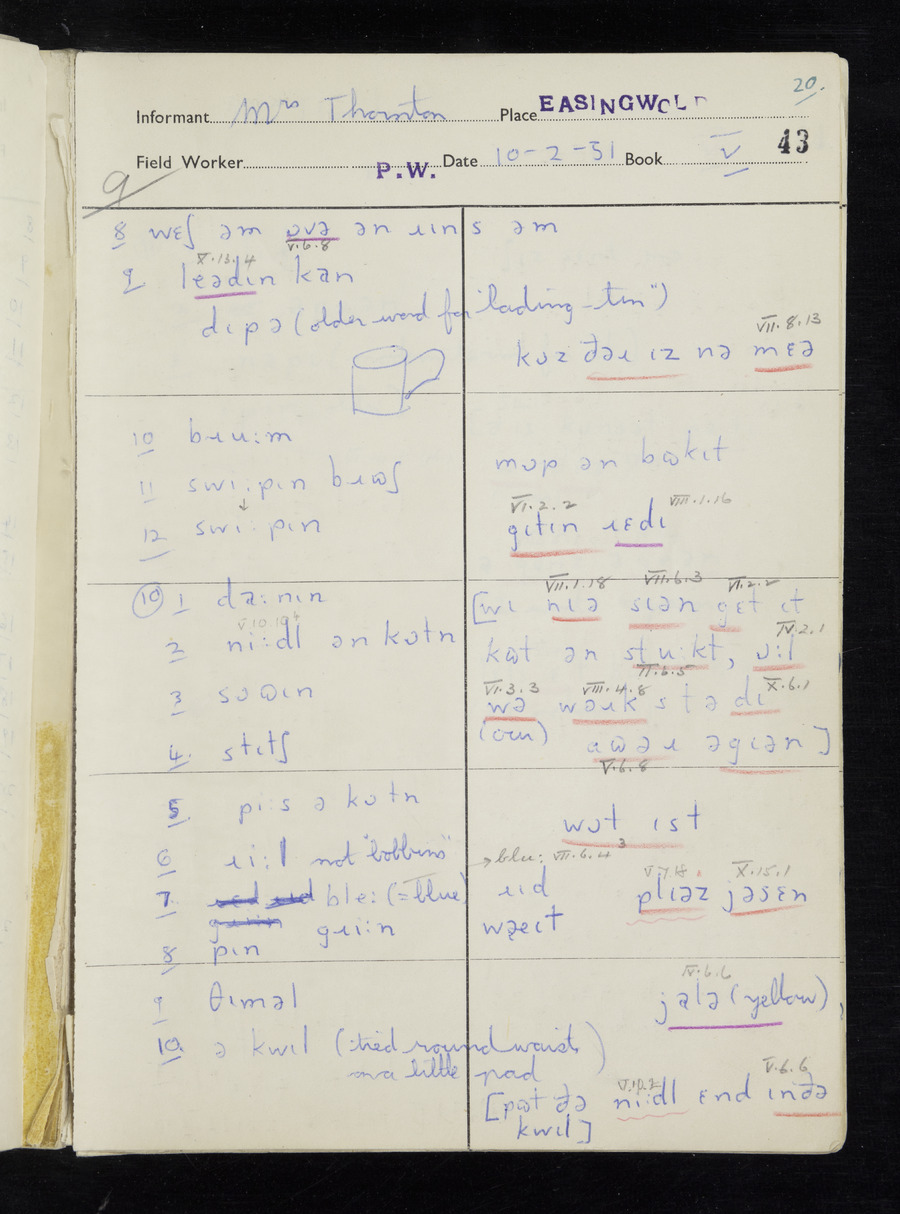 20.
Informant Mrs Thornton Place EASINGWOLD
Field Worker P.W. Date 10-2-51 Book V 43
9
8 wɛʃ əm ɒvə ən ɹɪns əm
V.6.8
X.13.4
9 leadɪn kan
dɪpə (older word for "lading-tin")
VII.8.13
kʊz ðəɪ ɪz nə mɛə
10 bɹuːm
11 swiːpɪn bɹɷʃ
12 swiːpɪn
mɒp ən bɷkɪt
VI.2.2 VIII.1.16
gɪtɪn ɹɛdɪ
10 1 daːnɪn
V.10.10
2 niːdl ən kɒtn
3 sɔɷɪn
4 stɪtʃ
VII.1.18 VII.6.3 VI.2.2
[wɪ nɪə sɪən gɛt ɪt
IV.2.1
kɷt ən stuːkt, ɒːl
II.6.5
VI.3.3 VIII.4.8 X.6.1
wə wəɪk stə dɪ
(our) aɷəɪ əgɪən]
V.6.8
5 piːs ə kɒtn
6 ɹiːl not "bobbins"
7 bleː (= blue)
gɹiːn
8 pɪn
wɒt ɪst
3
→ bluː VII.6.4
ɹɪd
waeɪt
V.7.18 X.15.1
plɪəz jəsɛn
9 θɪməl
10 ə kwɪl (tied round waist
on a little pad)
IV.6.6
jalə (yellow),
V.10.2 V.6.6
[pɷt ðə niːdl ɛnd ɪnðə
kwɪl]